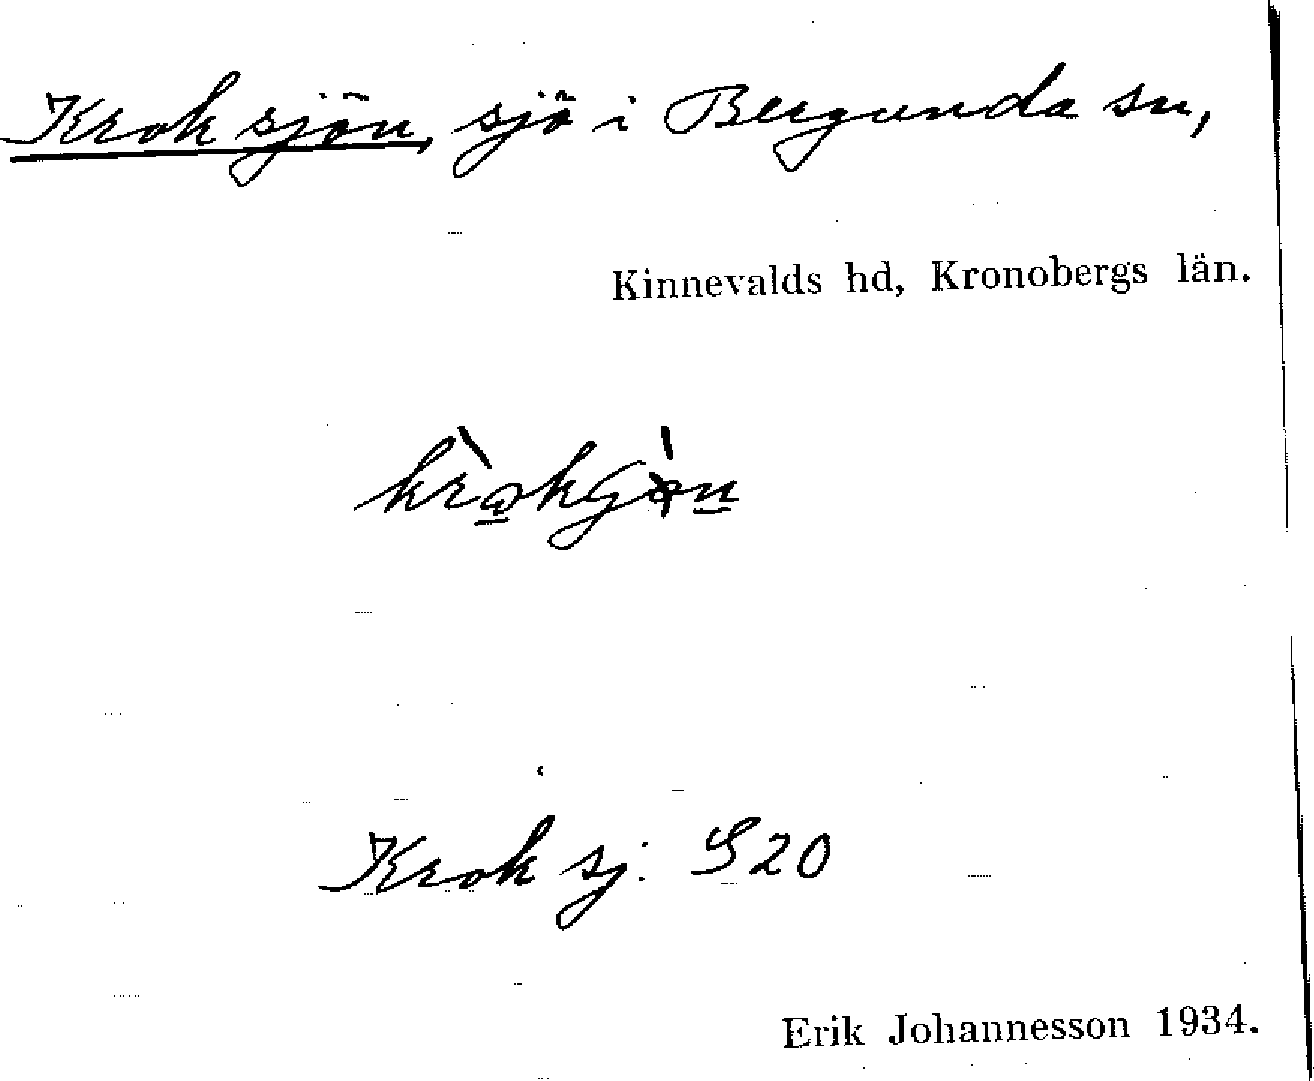 Kroksjön, sjö i Bergunda sn,
Kinnevalds hd, Kronobergs län.
Krok sj: S20
Erik Johannesson 1934.